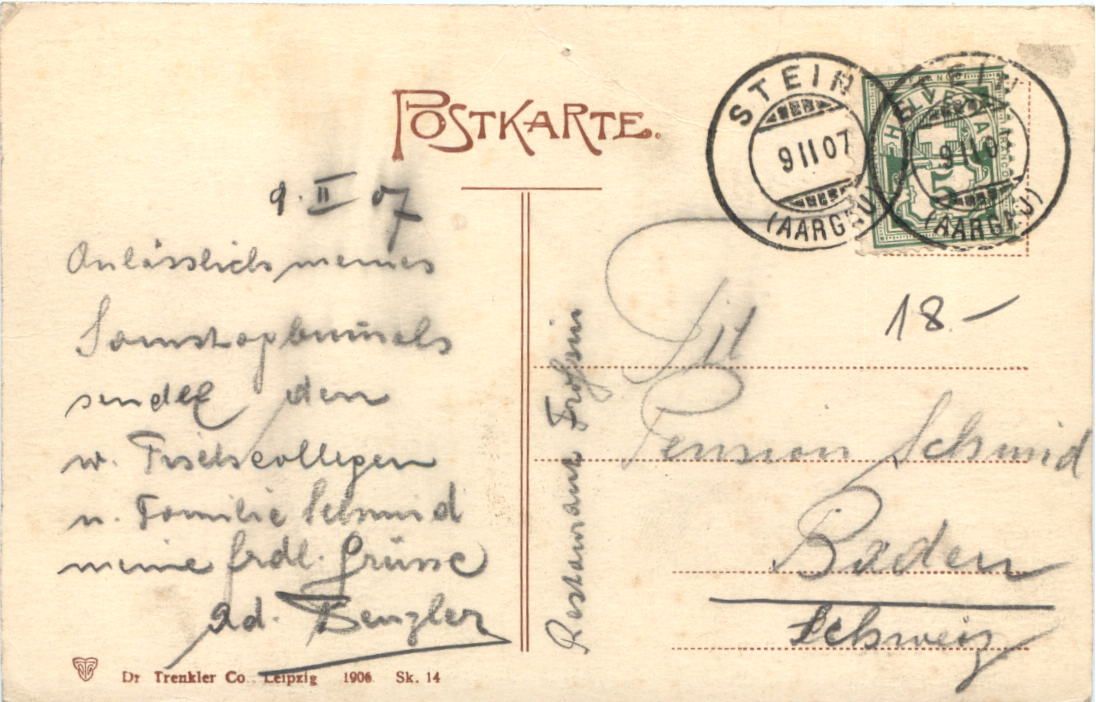 POSTKARTE.
STEIN
9 II 07
(AARGAU)
STEIN
9 II 07
(AARGAU)
HELVETIA
FRANCO
5
9. II 07
Anlässlich meines
Samstagbummels
sendet den
w. Tischcollegen
u. Familie Schmid
meine frdl. Grüsse
Ad. Benzler
Restaurant Frohsinn
18.-
Tit
Pension Schmid
Baden
Schweiz
Dr Trenkler Co. Leipzig 1906 Sk. 14